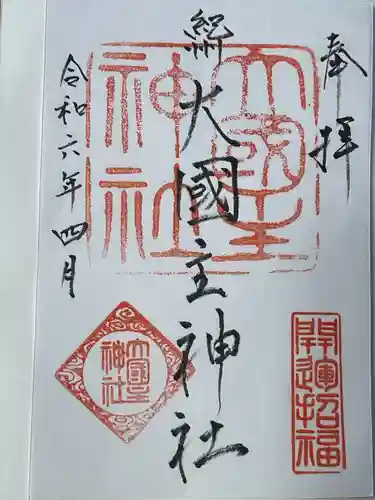 奉拝
総大國主神社
令和六年四月
大國主神社
開運招福
大國主神社